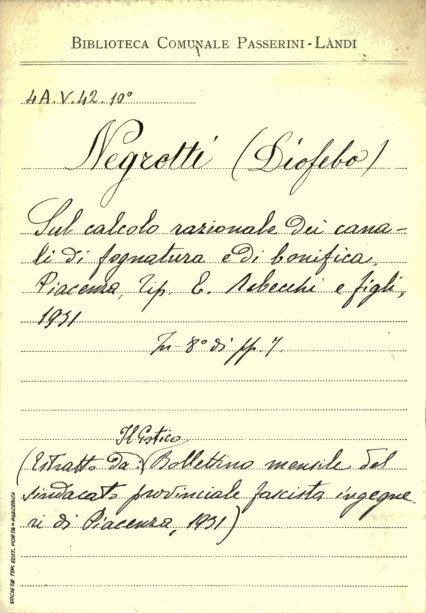 BIBLIOTECA COMUNALE PASSERINI-LANDI
4A.V.42.10°
Negrotti (Diofebo)
Sul calcolo razionale dei cana-
li di fognatura e di bonifica.
Piacenza, Tip. E. Rebecchi e figli,
1931
In-8° di pp. 7.
(Estratto da: Bollettino mensile del
sindacato provinciale fascista ingegne
ri di Piacenza, 1931)
SOCIETÀ TIP. EDIT. PORTA - PIACENZA